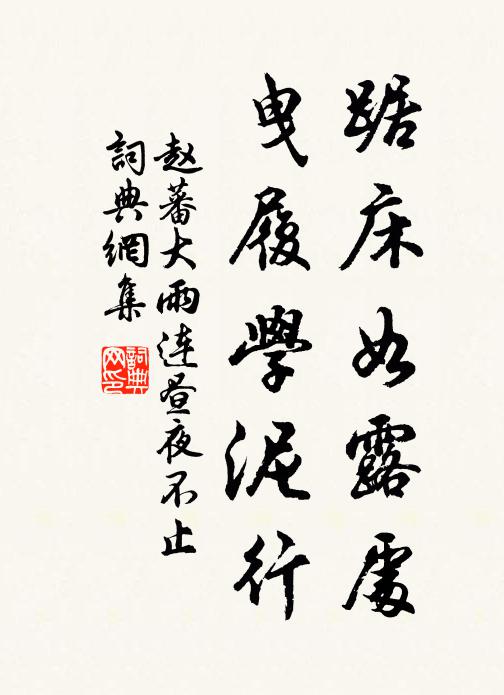 踞床如露處
曳履學泥行
赵蕃大雨連昼夜不止
詞典網集
詞典网印